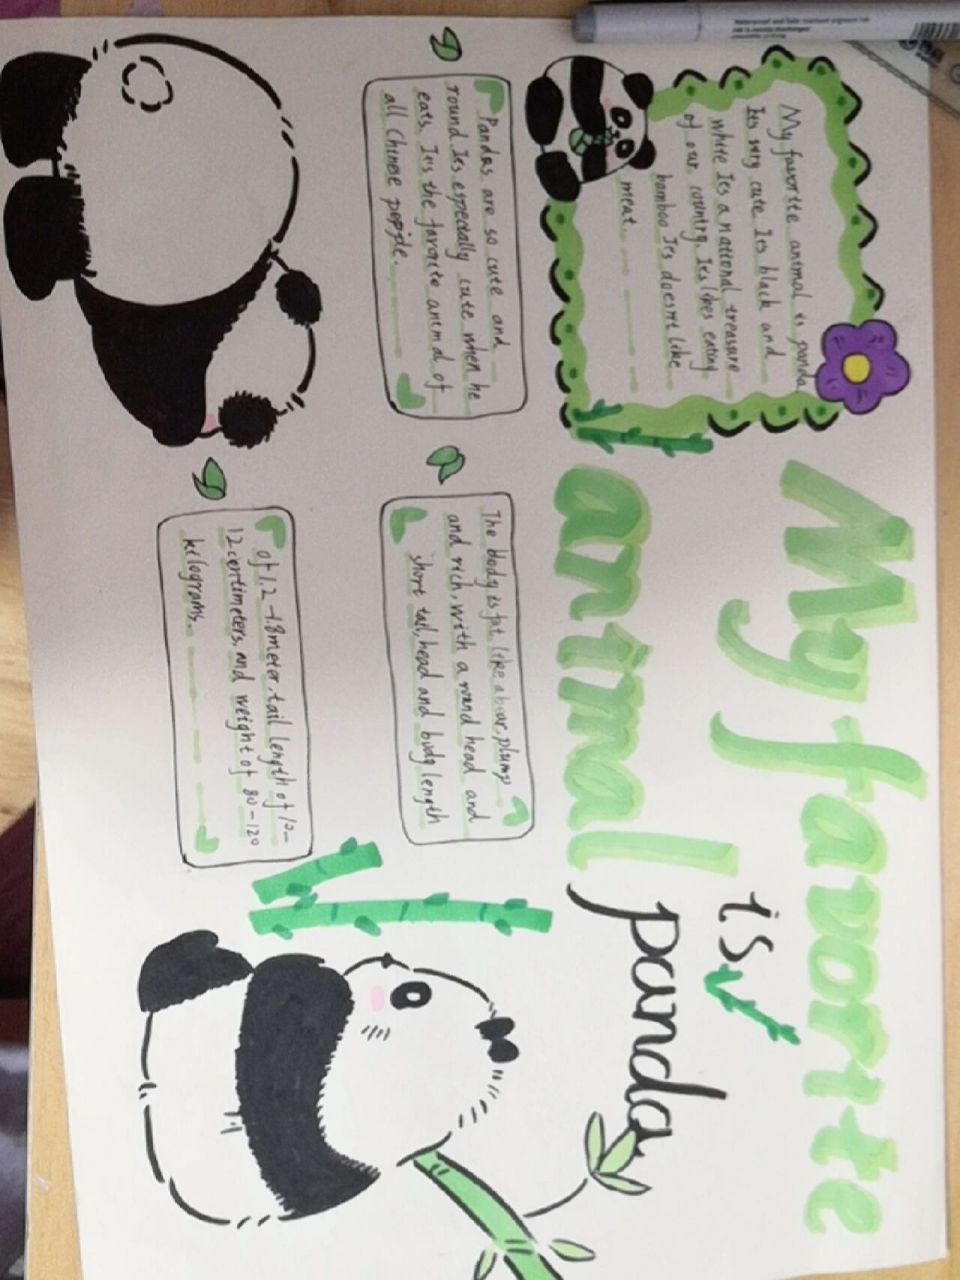 My favorite
animal
is
panda
My favortte animal is panda
Its very cute Its black and
where Its a national treasure
of our country. Its likes eating
bamboo Its doesn't like
meat.
Pandas are so cute and
round Its especially cute when he
eats. It's the favorite animal of
all Chinese
The body is fat, like a bear, plump
and rich, with a round head and
short tail, head and body length
of 1.2-1.8 meter, tail length of 10-
12 centimeters, and weight of 80-120
kilograms.